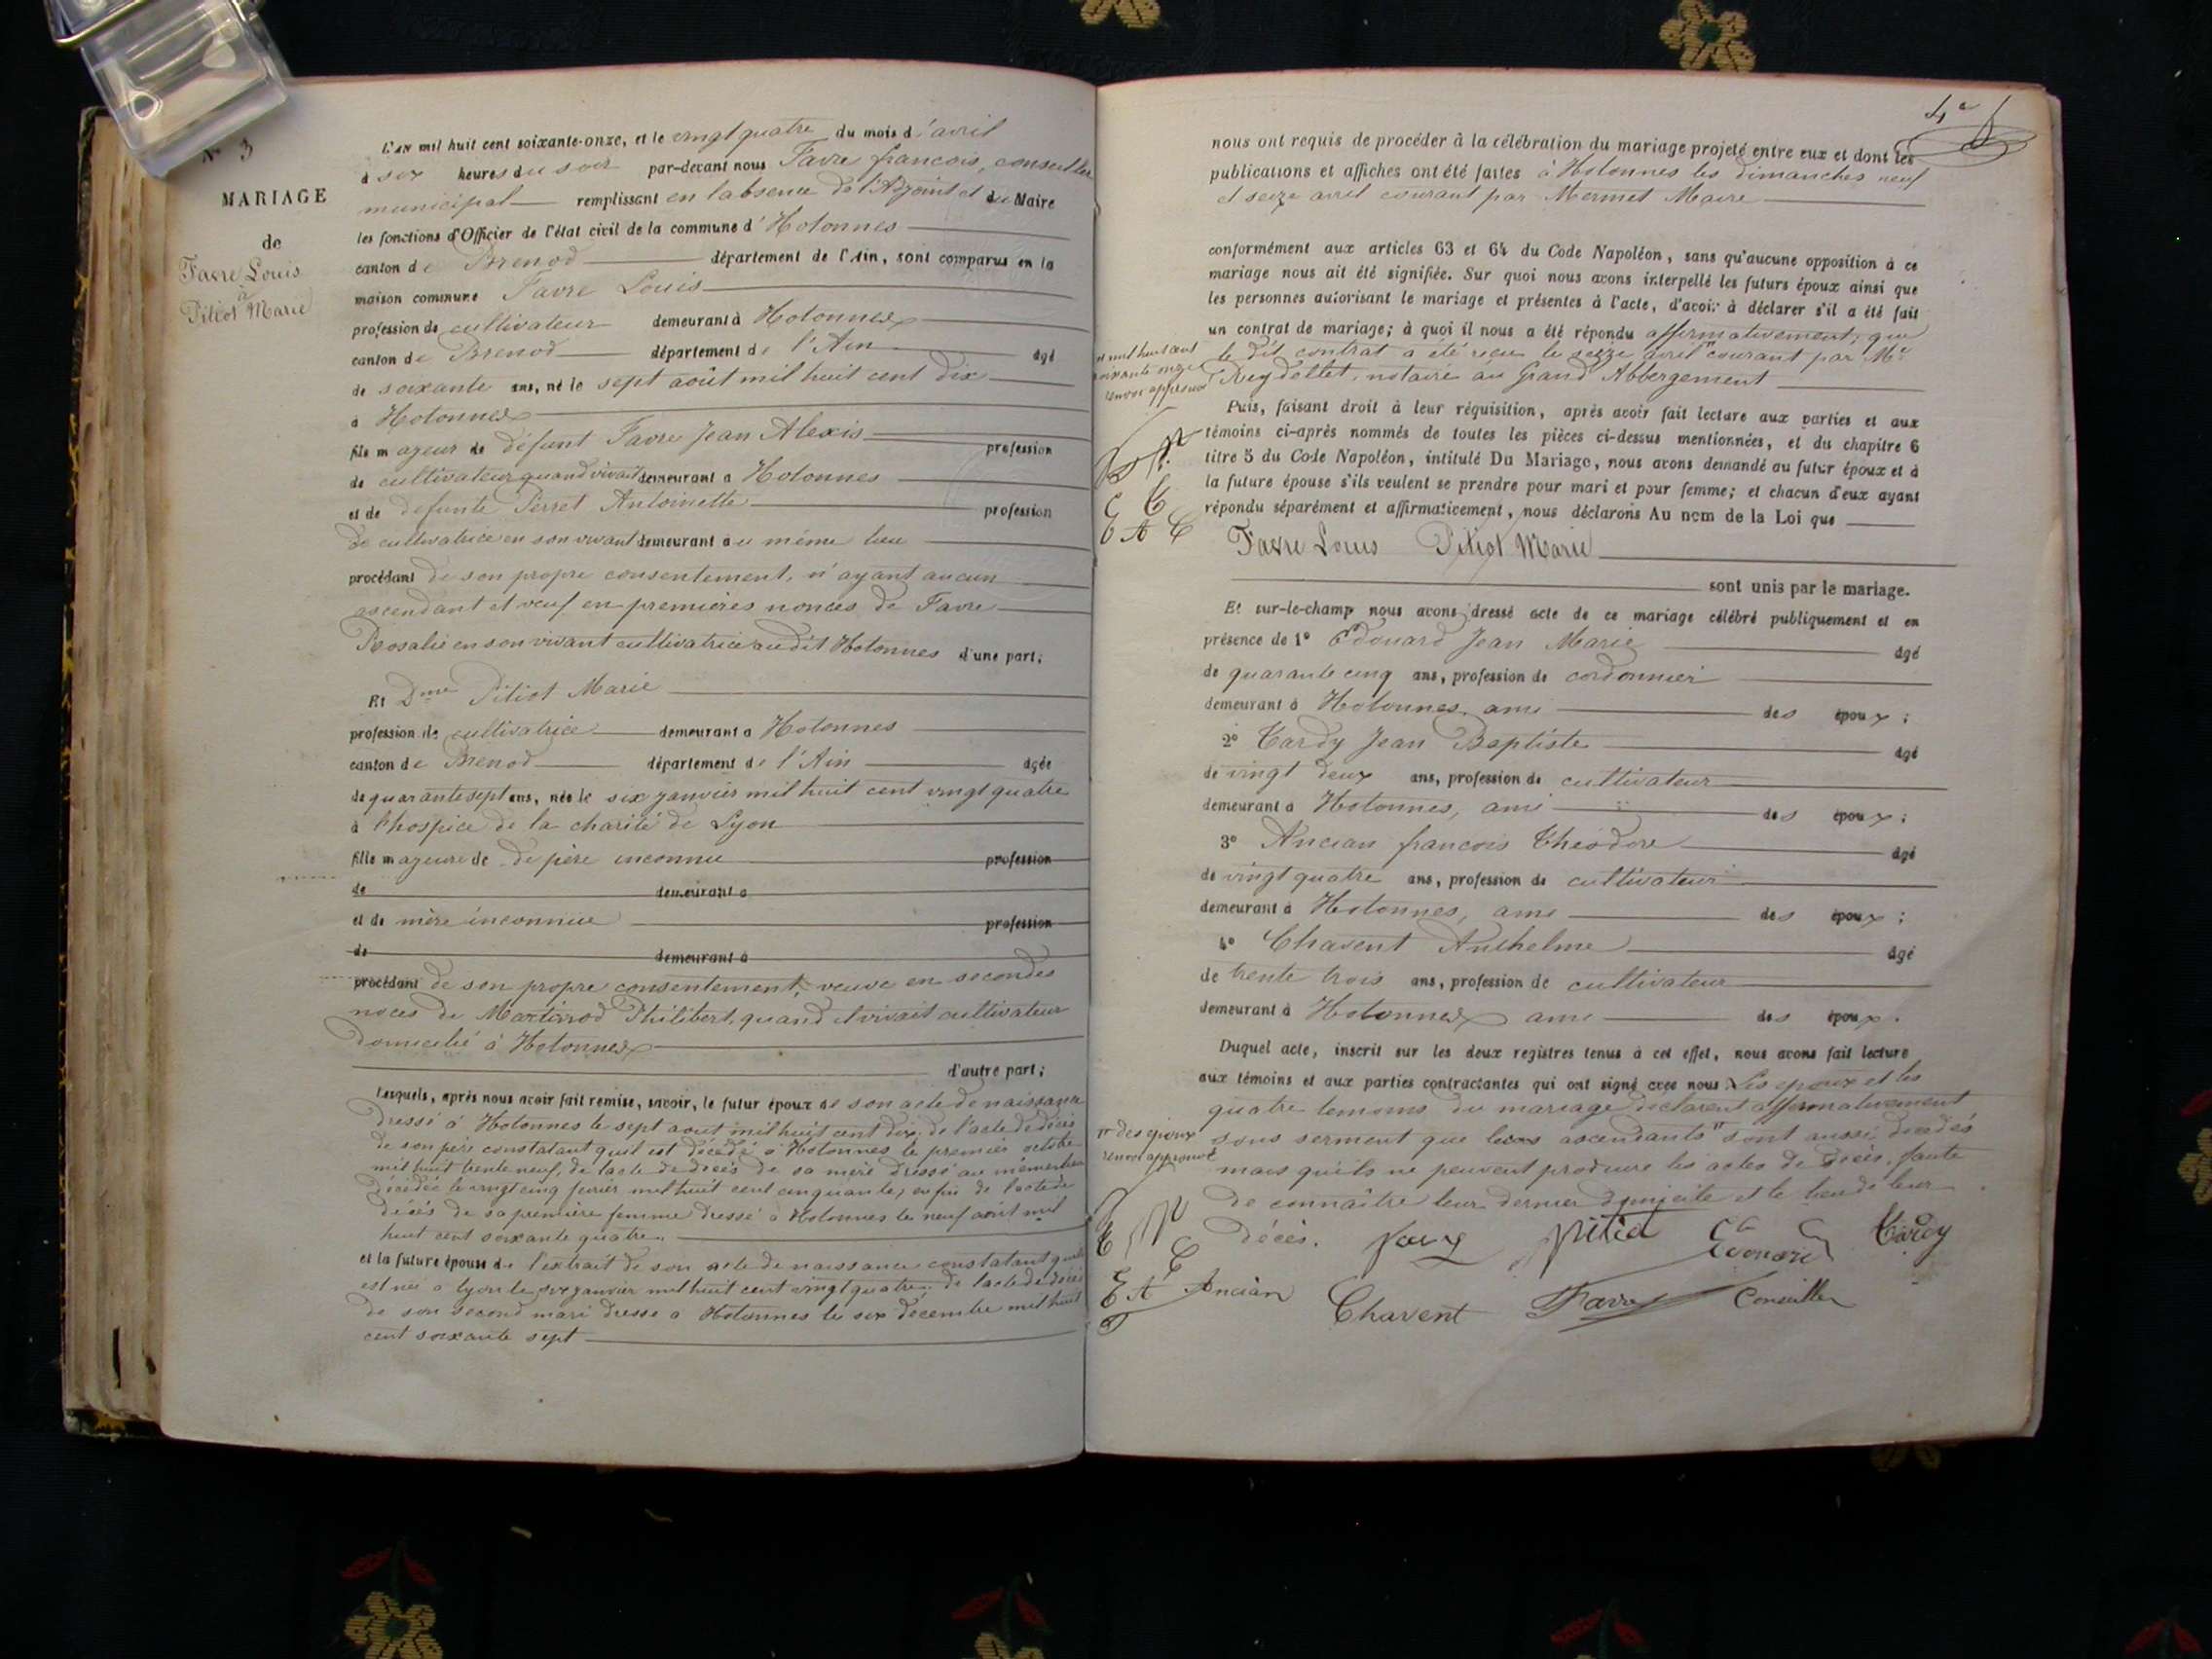 N° 3
MARIAGE
de
Favre Louis
à
Pitiot Marie
L'an mil huit cent soixante-onze, et le vingt quatre du mois d'avril
à six heures du soir par-devant nous Favre françois, conseiller
municipal remplissant en l'absence de l'Adjoint et du Maire
les fonctions d'Officier de l'état civil de la commune d'Hotonnes
canton de Brenod département de l'Ain, sont comparus en la
maison commune Favre Louis
profession de cultivateur demeurant à Hotonnes
canton de Brenod département de l'Ain âgé
de soixante ans, né le sept août mil huit cent dix
à Hotonnes
fils majeur de défunt Favre Jean Alexis profession
de cultivateur quand vivait demeurant à Hotonnes
et de defunte Perret Antoinette profession
de cultivatrice en son vivant demeurant au même lieu
procédant de son propre consentement, n'ayant aucun
ascendant et veuf en premières nonces de Favre
Rosalie en son vivant cultivatrice audit Hotonnes d'une part;
Et Dme Pitiot Marie
profession de cultivatrice demeurant à Hotonnes
canton de Brenod département de l'Ain âgée
de quarante sept ans, née le six janvier mil huit cent vingt quatre
à l'hospice de la charité de Lyon
fille majeure de de père inconnu profession
de demeurant à
et de mère inconnue profession
de demeurant à
procédant de son propre consentement, veuve en secondes
noces de Philibert, quand vivait cultivateur
domicilié à Hotonnes
d'autre part;
Lesquels, après nous avoir fait remise, savoir, le futur époux de son acte de naissance
dressé à Hotonnes le sept aout mil huit cent dix; de l'acte de décès
de son père constatant qu'il est décédé à Hotonnes le premier octobre
mil huit trente neuf, de l'acte de décès de sa mère dressé au même lieu
décédée le vingt cinq fevrier mil huit cent cinquante; enfin de l'acte de
décès de sa première femme dressé à Hotonnes le neuf août mil
huit cent soixante quatre.
et la future épouse de l'extrait de son acte de naissance constatant qu'elle
est née à Lyon le six janvier mil huit cent vingt quatre; de l'acte de décès
de son second mari dressé à Hotonnes le six decembre mil huit
cent soixante sept
4e
nous ont requis de procéder à la célébration du mariage projeté entre eux et dont les
publications et affiches ont été faites à Hotonnes les dimanches neuf
et seize avril courant par Mermet Maire
conformément aux articles 63 et 64 du Code Napoléon, sans qu'aucune opposition à ce
mariage nous ait été signifiée. Sur quoi nous avons interpellé les futurs époux ainsi que
les personnes autorisant le mariage et présentes à l'acte, d'avoir à déclarer s'il a été fait
un contrat de mariage; à quoi il nous a été répondu affirmativement; que
le dit contrat a été reçu le seize avril "courant par Me
Reydellet, notaire au Grand Abbergement
" mil huit cent
soixante onze
renvoi approuvé
Puis, faisant droit à leur réquisition, après avoir fait lecture aux parties et aux
témoins ci-après nommés de toutes les pièces ci-dessus mentionnées, et du chapitre 6
titre 5 du Code Napoléon, intitulé Du Mariage, nous avons demandé au futur époux et à
la future épouse s'ils veulent se prendre pour mari et pour femme; et chacun d'eux ayant
répondu séparément et affirmativement, nous déclarons Au nom de la Loi que
E A C
Favre Louis Pitiot Marie
sont unis par le mariage.
Et sur-le-champ nous avons dressé acte de ce mariage célébré publiquement et en
présence de 1° Edouard Jean Marie âgé
de quarante cinq ans, profession de cordonnier
demeurant à Hotonnes, ami des époux;
2° Tardy Jean Baptiste âgé
de vingt deux ans, profession de cultivateur
demeurant à Hotonnes, ami des époux;
3° Ancian françois Théodore âgé
de vingt quatre ans, profession de cultivateur
demeurant à Hotonnes, ami des époux;
4° Chavent Anthelme âgé
de trente trois ans, profession de cultivateur
demeurant à Hotonnes ami des époux.
Duquel acte, inscrit sur les deux registres tenus à cet effet, nous avons fait lecture
aux témoins et aux parties contractantes qui ont signé avec nous. Les époux et les
quatre temoins du mariage déclarent affirmativement
sous serment que leurs ascendants " sont aussi décédés
" des époux
renvoi approuvé
mais qu'ils ne peuvent produire les actes de décès, faute
de connaître leur dernier domicile et le lieu de leur
décès. pitiot Edouard Tardy
E A Ancian Chavent Favre Conseiller